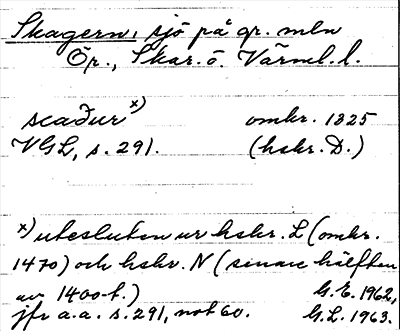 Skagern, sjö på gr. mln
Ör., Skar. o. Värml. l.
scaður x) omkr. 1325
VGL, s. 291. (hskr. D.)
x) utesluten ur hskr. L (omkr.
1470) och hskr. N (senare hälften
av 1400-t.) G.E. 1962,
jfr a.a. s. 291, not 60. G.L. 1963.